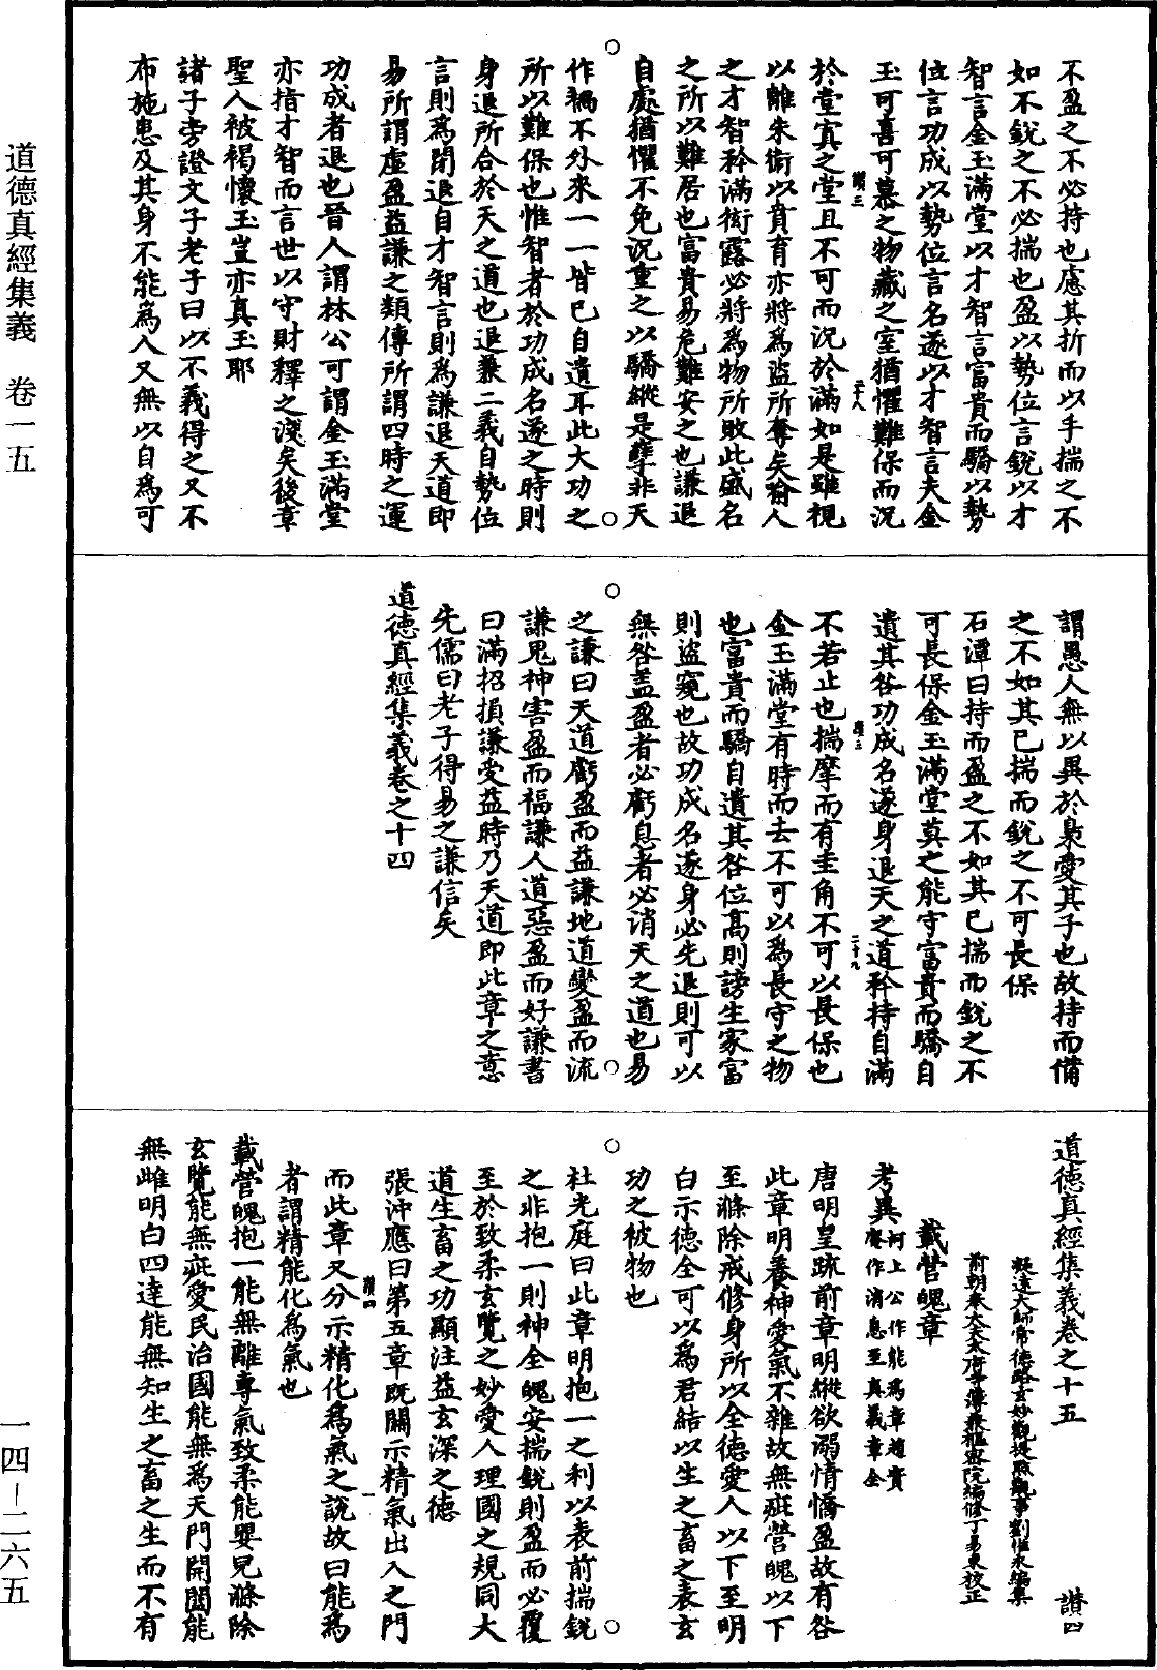 道德真經集義　卷一五
一四－二六五
不盈之不必持也慮其折而以手揣之不
如不銳之不必揣也盈以勢位言銳以才
智言金玉滿堂以才智言富貴而驕以勢
位言功成以勢位言名遂以才智言夫金
玉可喜可慕之物藏之室猶懼難保而況
讚三
二十八
於堂寘之堂且不可而況於滿如是雖視
以離朱衛以賁育亦將為盜所奪矣矜人
之才智矜滿衒露必將為物所敗此盛名
之所以難居也富貴易危難安之也謙退
自處猶懼不免況重之以驕縱是孽非天
作禍不外來一一皆已自遺耳此大功之
所以難保也惟智者於功成名遂之時則
身退所合於天之道也退兼二義自勢位
言則為閉退自才智言則為謙退天道即
易所謂虛盈益謙之類傳所謂四時之運
功成者退也晉人謂林公可謂金玉滿堂
亦指才智而言世以守財釋之淺矣後章
聖人被褐懷玉豈亦真玉耶
諸子旁證文子老子曰以不義得之又不
布施患及其身不能為人又無以自為可
謂愚人無以異於梟愛其子也故持而備
之不如其已揣而銳之不可長保
石潭曰持而盈之不如其已揣而銳之不
可長保金玉滿堂莫之能守富貴而驕自
遺其咎功成名遂身退天之道矜持自滿
讚三
二十九
不若止也揣摩而有圭角不可以長保也
金玉滿堂有時而去不可以為長守之物
也富貴而驕自遺其咎位高則謗生家富
則盜窺也故功成名遂身必先退則可以
無咎盖盈者必虧息者必消天之道也易
之謙曰天道虧盈而益謙地道變盈而流
謙鬼神害盈而福謙人道惡盈而好謙書
曰滿招損謙受益時乃天道即此章之意
先儒曰老子得易之謙信矣
道德真經集義卷之十四
道德真經集義卷之十五
讚四
凝遠大師常德路玄妙觀提點觀事劉惟永編集
前朝奉大夫太府寺簿兼樞密院編修丁易東校正
載營魄章
考異河上公作能為章趙實
庵作消息至真義章全
唐明皇疏前章明縱欲溺情憍盈故有咎
此章明養神愛氣不雜故無疵營魄以下
至滌除戒修身所以全德愛人以下至明
白示德全可以為君結以生之畜之表玄
功之被物也
杜光庭曰此章明抱一之利以表前揣銳
之非抱一則神全魄安揣銳則盈而必覆
至於致柔玄覽之妙愛人理國之規同大
道生畜之功顯注益玄深之德
張沖應曰第五章既闢示精氣出入之門
讚四
一
而此章又分示精化為氣之說故曰能為
者謂精能化為氣也
載營魄抱一能無離專氣致柔能嬰兒滌除
玄覽能無疵愛民治國能無為天門開闔能
無雌明白四達能無知生之畜之生而不有